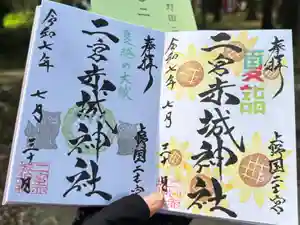 奉拝
上野国二宮
二宮赤城神社
夏越の大祓
令和七年
七月三十日
奉拝
夏詣
上野国二之宮
二宮赤城神社
令和七年
七月三十日